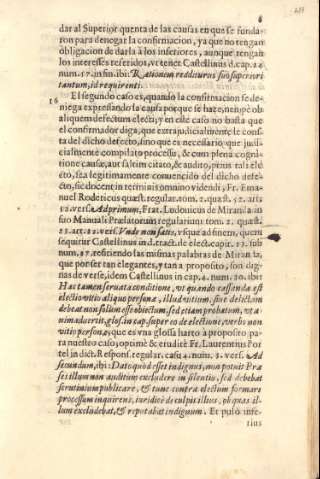 6
dar al Superior quenta de las causas en que se funda-
ron para denegar la confirmacion, ya que no tengan
obligacion de darla à los inferiores, aunque tengan
los interesses referidos, vt tenet Castellinus d. cap. 14
num. 17. in fin. ibi: Rationem redditurus suo superiori
tantum, id requirenti.
16 El segundo caso es, quando la confirmacion se de-
niega expressando la causa porque se haze, nempè ob
aliquem defectum electi, y en este caso no basta que
el confirmador diga, que extrajudicialmente le cons-
ta del dicho defecto, sino que es necessario, que judi-
cialmente compilato processu, & cum plena cognit-
tione causæ, aut saltim citato, & audito, prius tali ele-
cto, sea legitimamente convencido del dicho defe-
cto, sic docent in terminis omnino videndi, Fr. Ema-
nuel Rodericus quæst. regular. tom. 2. quæst. 52. artic.
vers. Ad primum, Frat. Ludovicus de Miranda in
suo Manuali Prælatorum regularium, tom. 2. quæst.
23. art. vers. Vnde non satis, vsque ad finem, quem
sequitur Castellinus in d. tract. de elect. capit. 13. sub
num. 87. refiriendo las mismas palabras de Miranda,
que por ser tan elegantes, y tan a proposito, son dig-
nas de verse, idem Castellinus in cap. 4. num. 20. ibi:
Hac tamen seruata conditione, vt quando cassanda est
electio vitio aliquo personæ, illud vitium, siue delictum
debeat non solum esse obiectum, sed etiam probatum, vt a-
nimaduertit, glos. in cap. super eo de electione, verbo non
vitio personæ, que es vna glossa harto a proposito pa-
ra nuestro caso, optimè & eruditè Fr. Laurentius Por
tel in dict. Respons. regular. casu 4. num. 3. vers. Ad
secundum, ibi: Dato quòd esset indignus, non potuit Præ
ses illum non auditum excludere in silentio, sed debebat
scrutinium publicare, & tunc contra electum formare
processum inquirens, iuridicè de culpis illius, ob quas il-
lum excludebat, & reputabat indignum. Et pulo infe-
rius